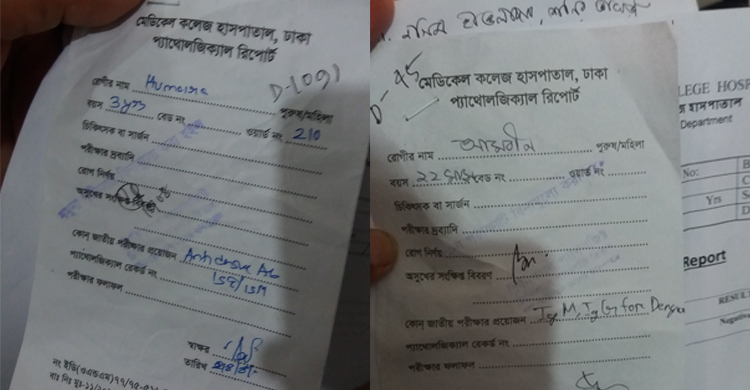 মেডিকেল কলেজ হাসপাতাল, ঢাকা
প্যাথোলজিক্যাল রিপোর্ট
D-1091
রোগীর নাম Humaira
পুরুষ/মহিলা
বয়স 3yrs বেড নং ওয়ার্ড নং 210
চিকিৎসক বা সার্জন
পরীক্ষার দ্রব্যাদি
রোগ নির্ণয়
অসুখের সংক্ষিপ্ত বিবরণ
কোন্ জাতীয় পরীক্ষার প্রয়োজন Antidengue Ab
প্যাথোলজিক্যাল রেকর্ড নং IgG/IgM
পরীক্ষার ফলাফল
স্বাক্ষর
তারিখ
D-45
মেডিকেল কলেজ হাসপাতাল, ঢাকা
প্যাথোলজিক্যাল রিপোর্ট
রোগীর নাম
পুরুষ/মহিলা
বয়স ২২ বেড নং ওয়ার্ড নং
চিকিৎসক বা সার্জন
পরীক্ষার দ্রব্যাদি
রোগ নির্ণয়
অসুখের সংক্ষিপ্ত বিবরণ
কোন্ জাতীয় পরীক্ষার প্রয়োজন IgM, IgG for Dengue
প্যাথোলজিক্যাল রেকর্ড নং
পরীক্ষার ফলাফল
LEGE HOSP
হাসপাতাল
Department
No:
Yrs
Report
RESUL
Negative